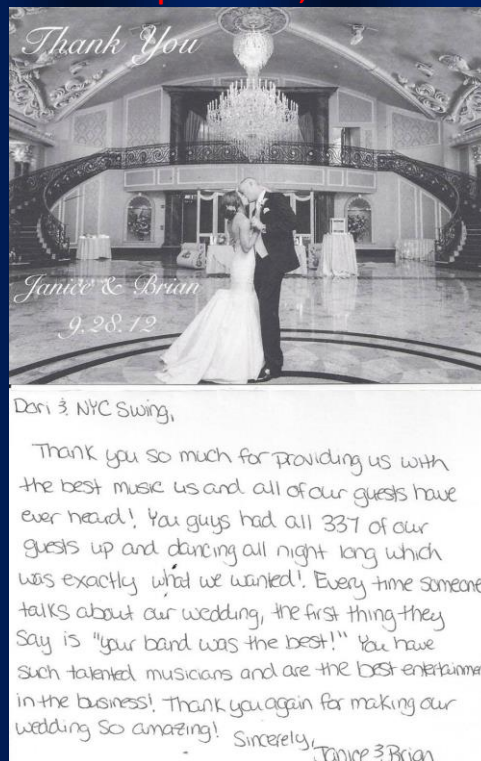 Thank You
Janice & Brian
9.28.12
Dori & NYC Swing,
Thank you so much for providing us with
the best music us and all of our guests have
ever heard! You guys had all 337 of our
guests up and dancing all night long which
was exactly what we wanted! Every time someone
talks about our wedding, the first thing they
say is "your band was the best!" You have
such talented musicians and are the best entertainme
in the business! Thank you again for making our
wedding so amazing! Sincerely,
Janice & Brian